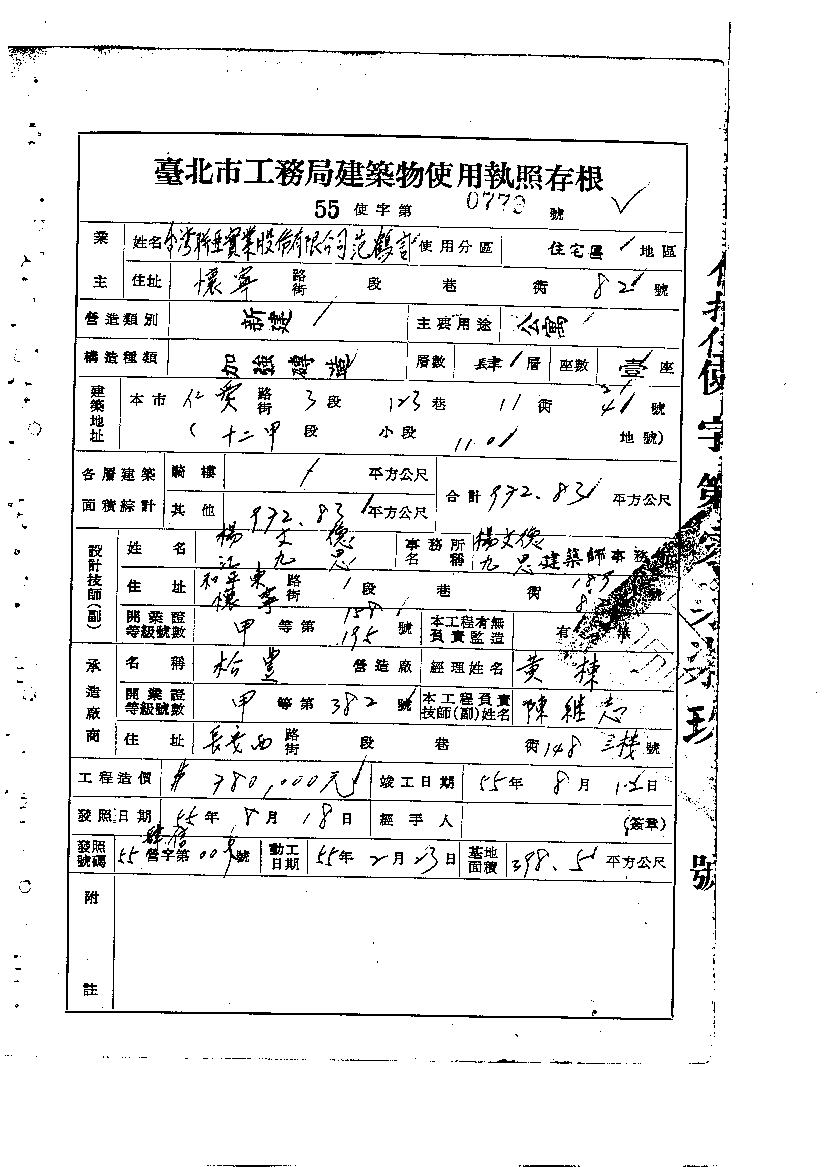 臺北市工務局建築物使用執照存根
55 使字第 0773 號
業主 姓名 台灣聯亞實業股份有限公司范鶴 使用分區 住宅區 地區
住址 懷寧 路街 段 巷 衖 82 號
營造類別 新建 主要用途 公寓
構造種類 加強磚造 層數 肆 層 座數 壹 座
建築地址 本市 仁愛 路街 3 段 123 巷 11 衖 2 4 號
( 十二甲 段 小段 110 地號)
各層建築面積綜計 騎樓 / 平方公尺 合計 972.83 平方公尺
其他 972.83 平方公尺
設計技師(副) 姓名 楊文德 沈九思 事務所名稱 楊文德 九思 建築師事務
住址 和平東 懷寧 路街 1 段 巷 衖 號
開業證等級號數 甲 等第 158 195 號 本工程有無負責監造 有
承造廠商 名稱 松豐 營造廠 經理姓名 黃棟
開業證等級號數 甲 等第 382 號 本工程負責技師(副)姓名 陳継志
住址 長安西 路街 段 巷 衖 148 三楼 號
工程造價 $ 780,000元 竣工日期 55年 8月 15日
發照日期 55年 8月 18日 經手人 (簽章)
發照號碼 55 營字第 號 動工日期 55年 2月 23日 基地面積 398.5 平方公尺
附註
使字第
號